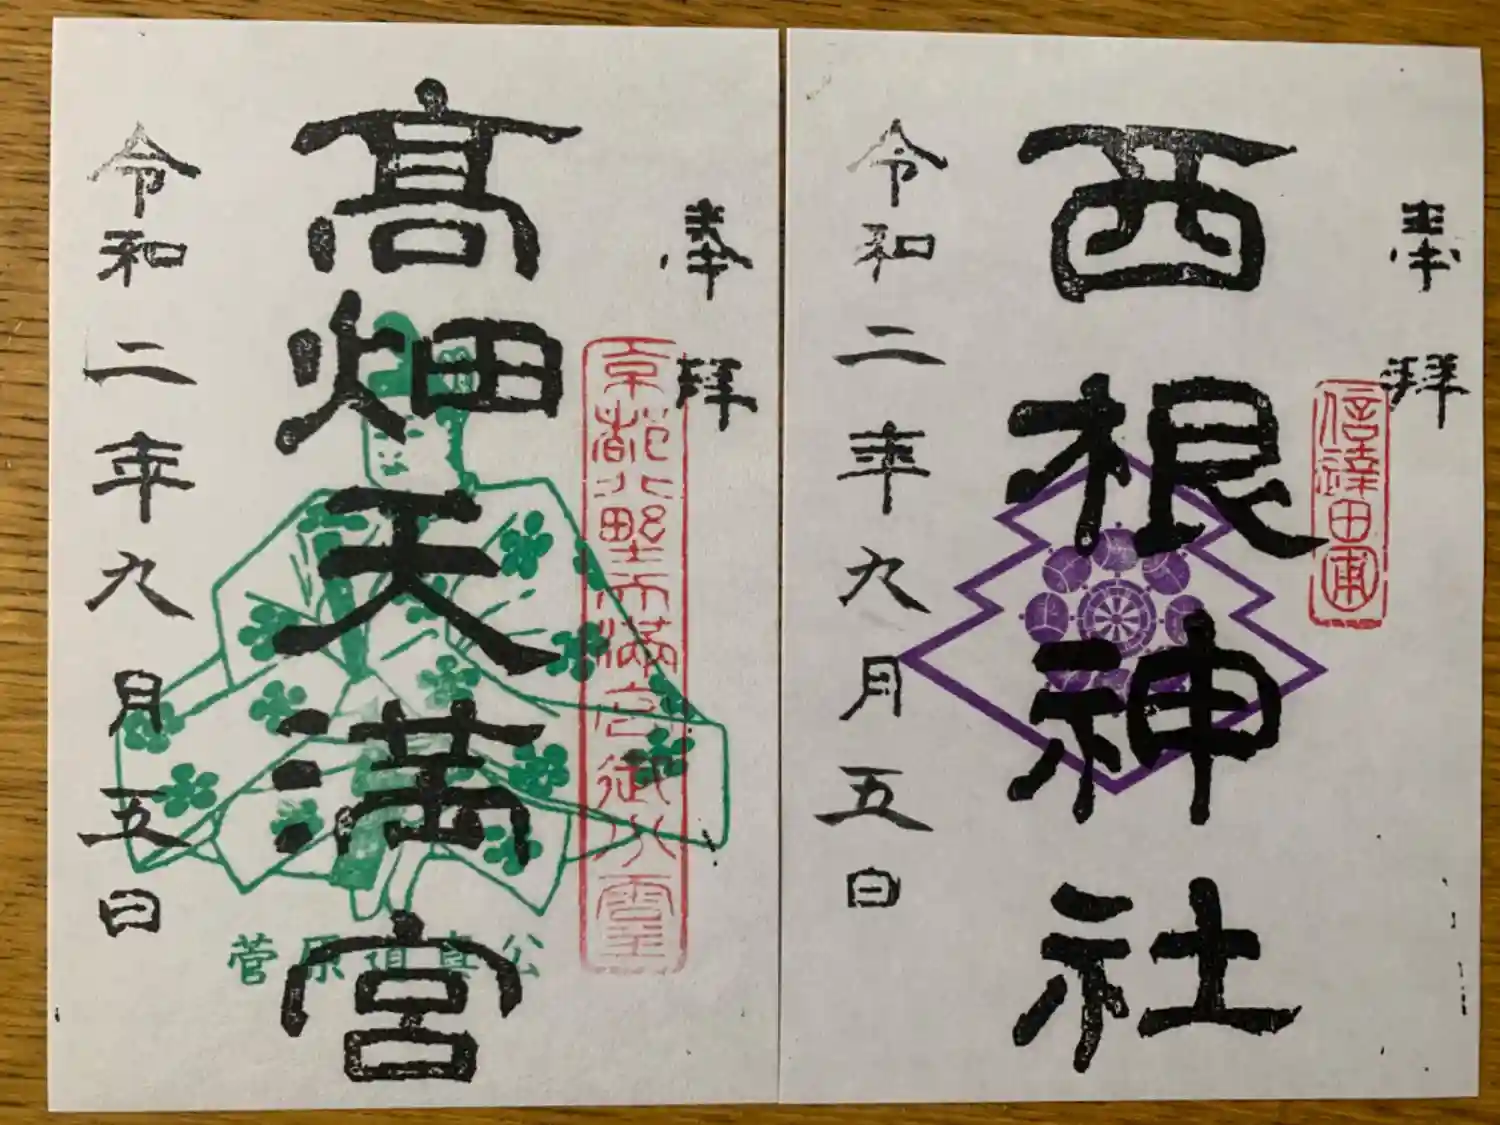 奉拝
西根神社
信達田圃
令和二年九月五日
奉拝
京都北野天満宮御分霊
髙畑天満宮
菅原道真公
令和二年九月五日